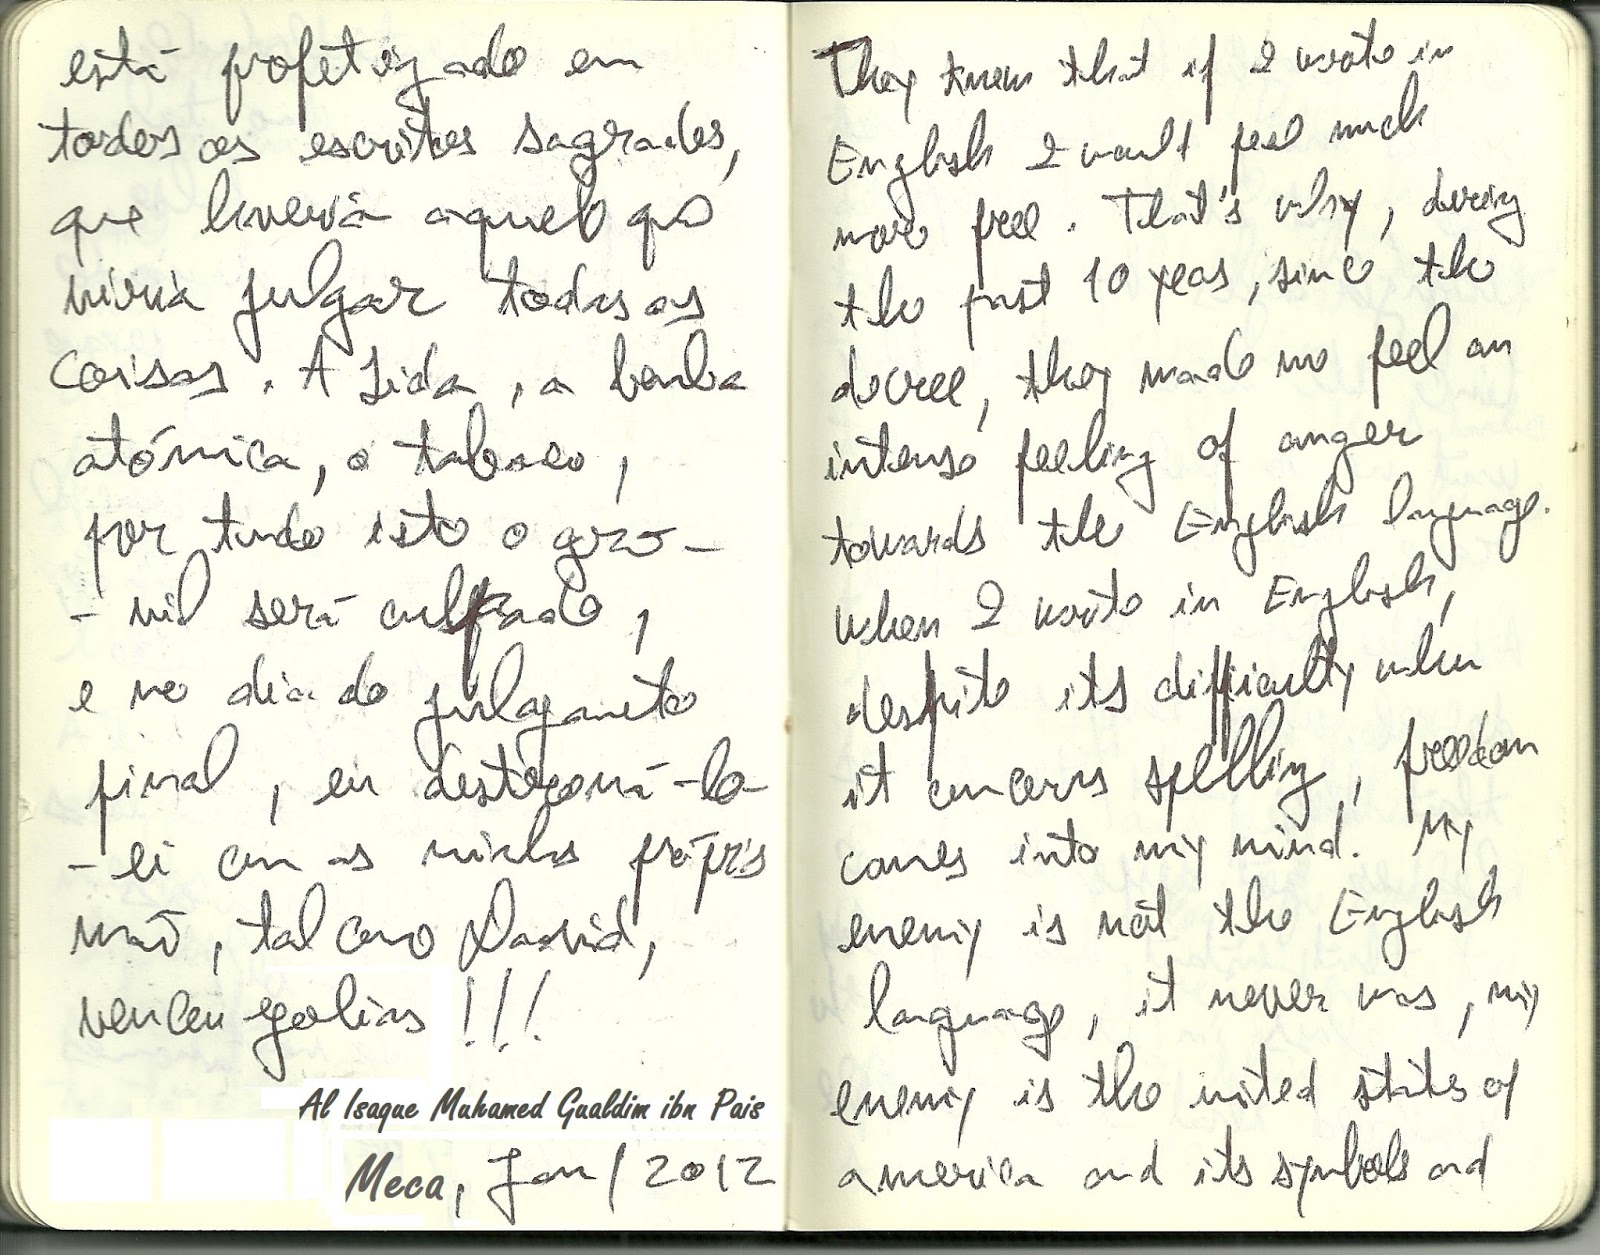 está profetizado em
todos os escritos sagrados,
que haveria aquel que
viria julgar todas as
coisas. A Sida, a bomba
atómica, o tabaco,
por tudo isto o gro-
-vil será culpado,
e no dia do julgamento
final, eu destroná-lo-
-ei com as minhas própris
mão, tal como David,
venceu golias!!!
Al Isaque Muhamed Gualdim ibn Pais
Meca, Jan/2012
They knew that if I wrote in
English I would feel much
more free. That's why, during
the past 10 yeas, since the
decree, they made me feel an
intense feeling of anger
towards the English language.
when I wrote in English,
despite its difficulty when
it concerns spelling, freedom
comes into my mind. My
enemy is not the English
language, it never was, my
enemy is the united states of
america and its symbols and